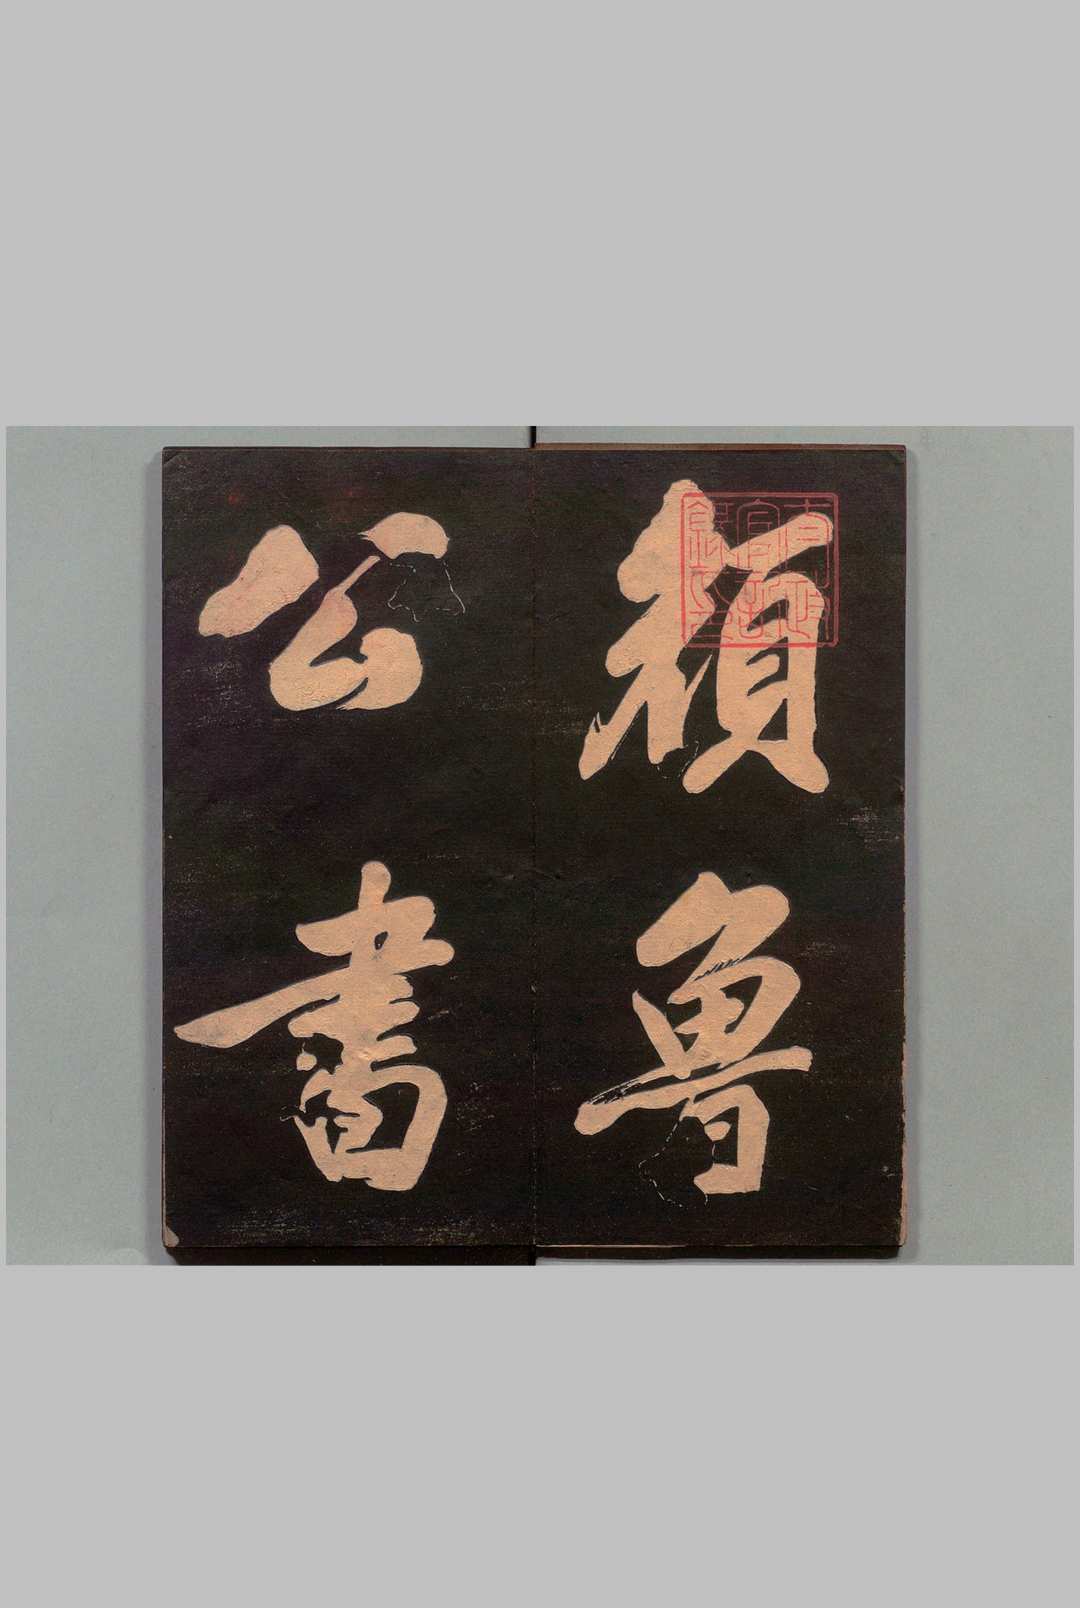 顏魯
公書